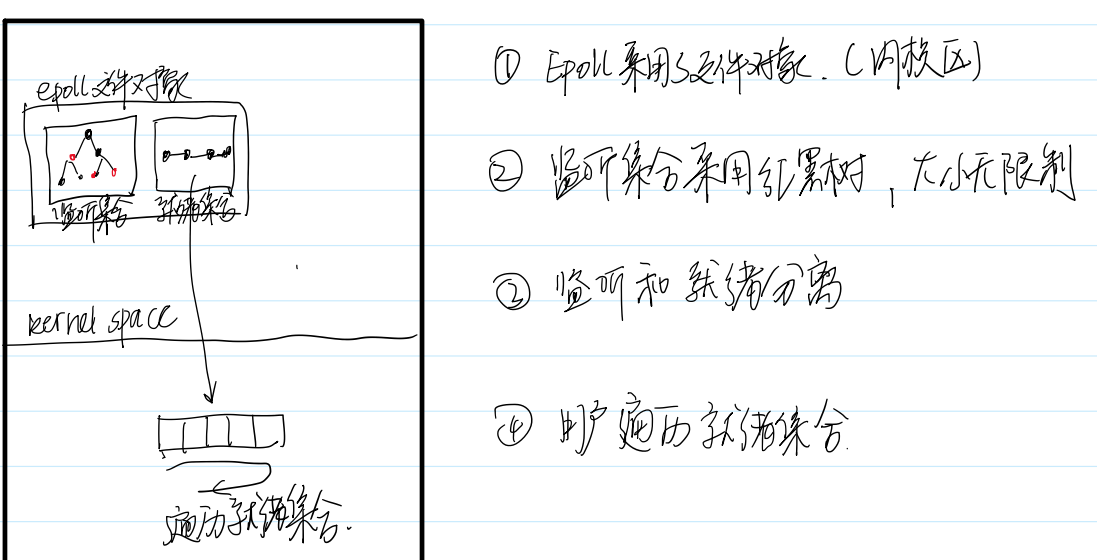 epoll文件对象
监听集合
就绪集合
kernel space
遍历就绪集合.
① Epoll采用了文件对象.(内核区)
② 监听集合采用红黑树,大小无限制
③ 监听和就绪分离
④ 用户遍历就绪集合.